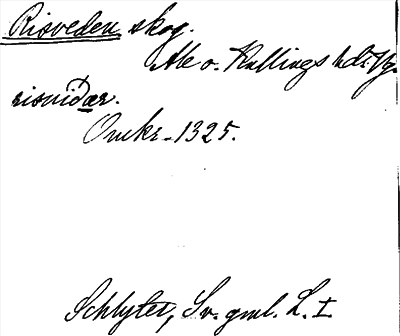 Risveden, skog.
Ale o. Kullings hdr Vg.
risuidær.
Omkr. 1325.
Schlyter, Sv. gml. L. I